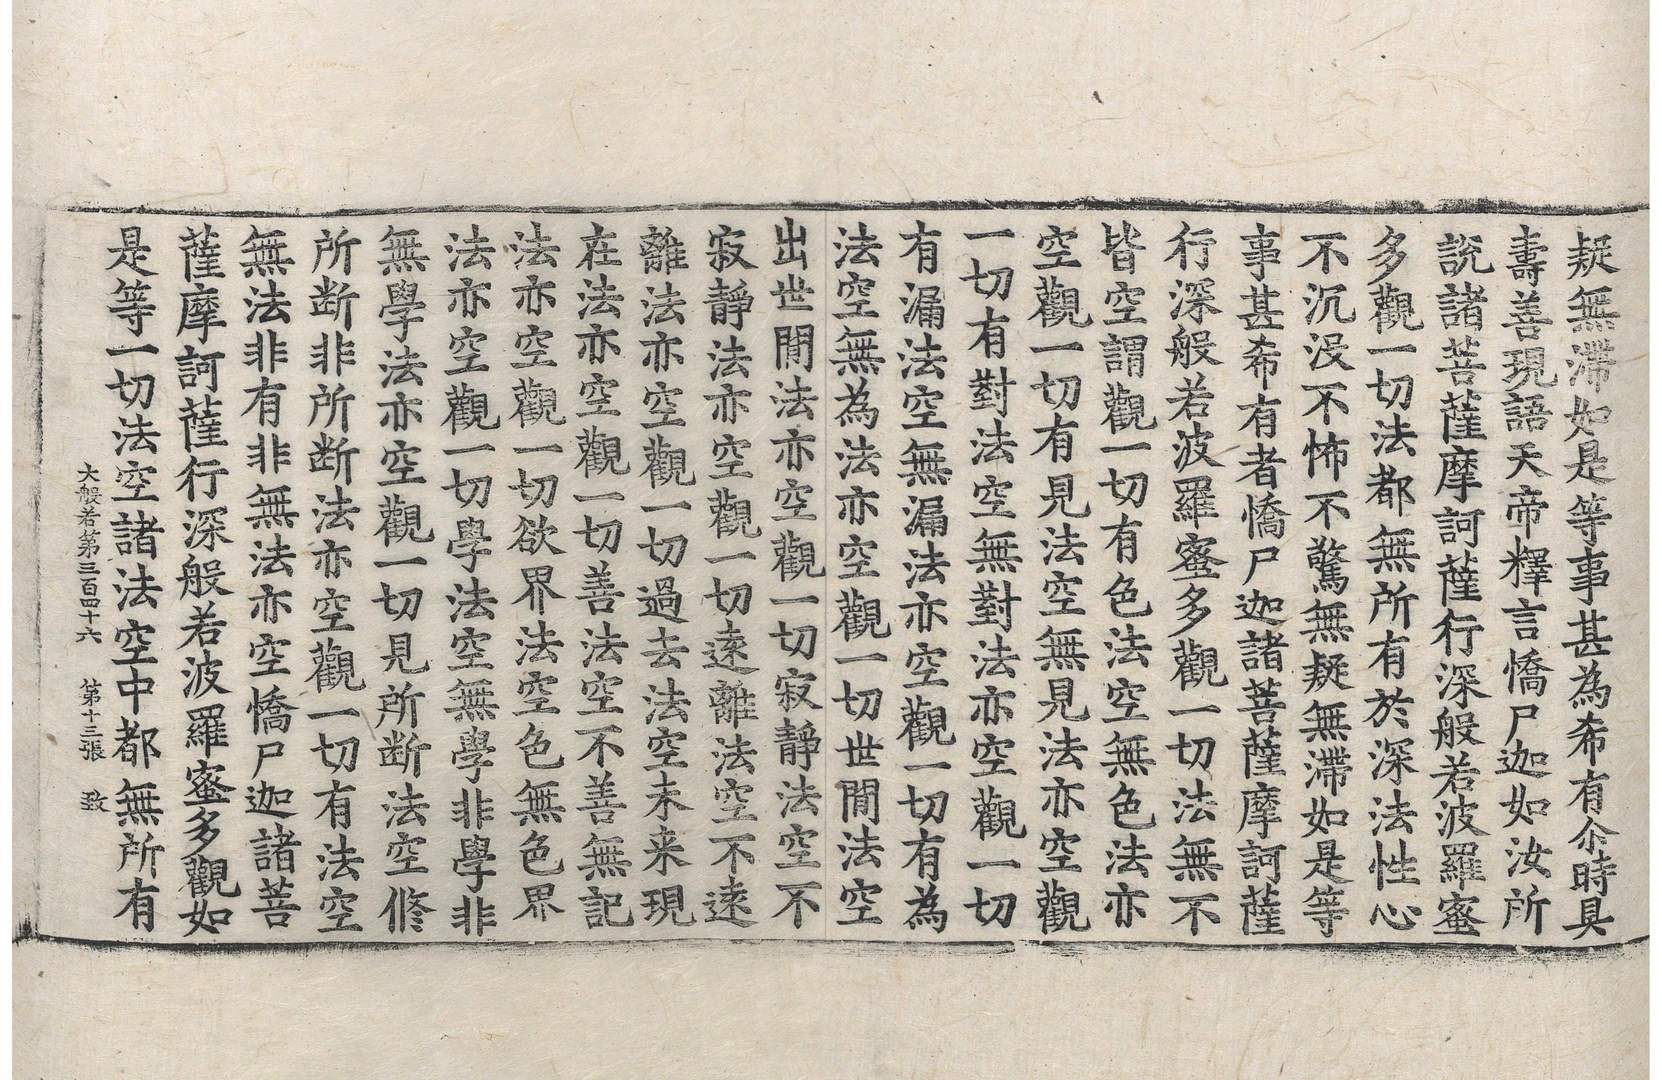 疑無滯如是等事甚為希有尒時具
壽善現語天帝釋言憍尸迦如汝所
說諸菩薩摩訶薩行深般若波羅蜜
多觀一切法都無所有於深法性心
不沉沒不怖不驚無疑無滯如是等
事甚希有者憍尸迦諸菩薩摩訶薩
行深般若波羅蜜多觀一切法無不
皆空謂觀一切有色法空無色法亦
空觀一切有見法空無見法亦空觀
一切有對法空無對法亦空觀一切
有漏法空無漏法亦空觀一切有為
法空無為法亦空觀一切世閒法空
出世閒法亦空觀一切寂靜法空不
寂靜法亦空觀一切遠離法空不遠
離法亦空觀一切過去法空未来現
在法亦空觀一切善法空不善無記
法亦空觀一切欲界法空色無色界
法亦空觀一切學法空無學非學非
無學法亦空觀一切見所断法空修
所断非所断法亦空觀一切有法空
無法非有非無法亦空憍尸迦諸菩
薩摩訶薩行深般若波羅蜜多觀如
是等一切法空諸法空中都無所有
大般若第三百四十六 第十三張 致